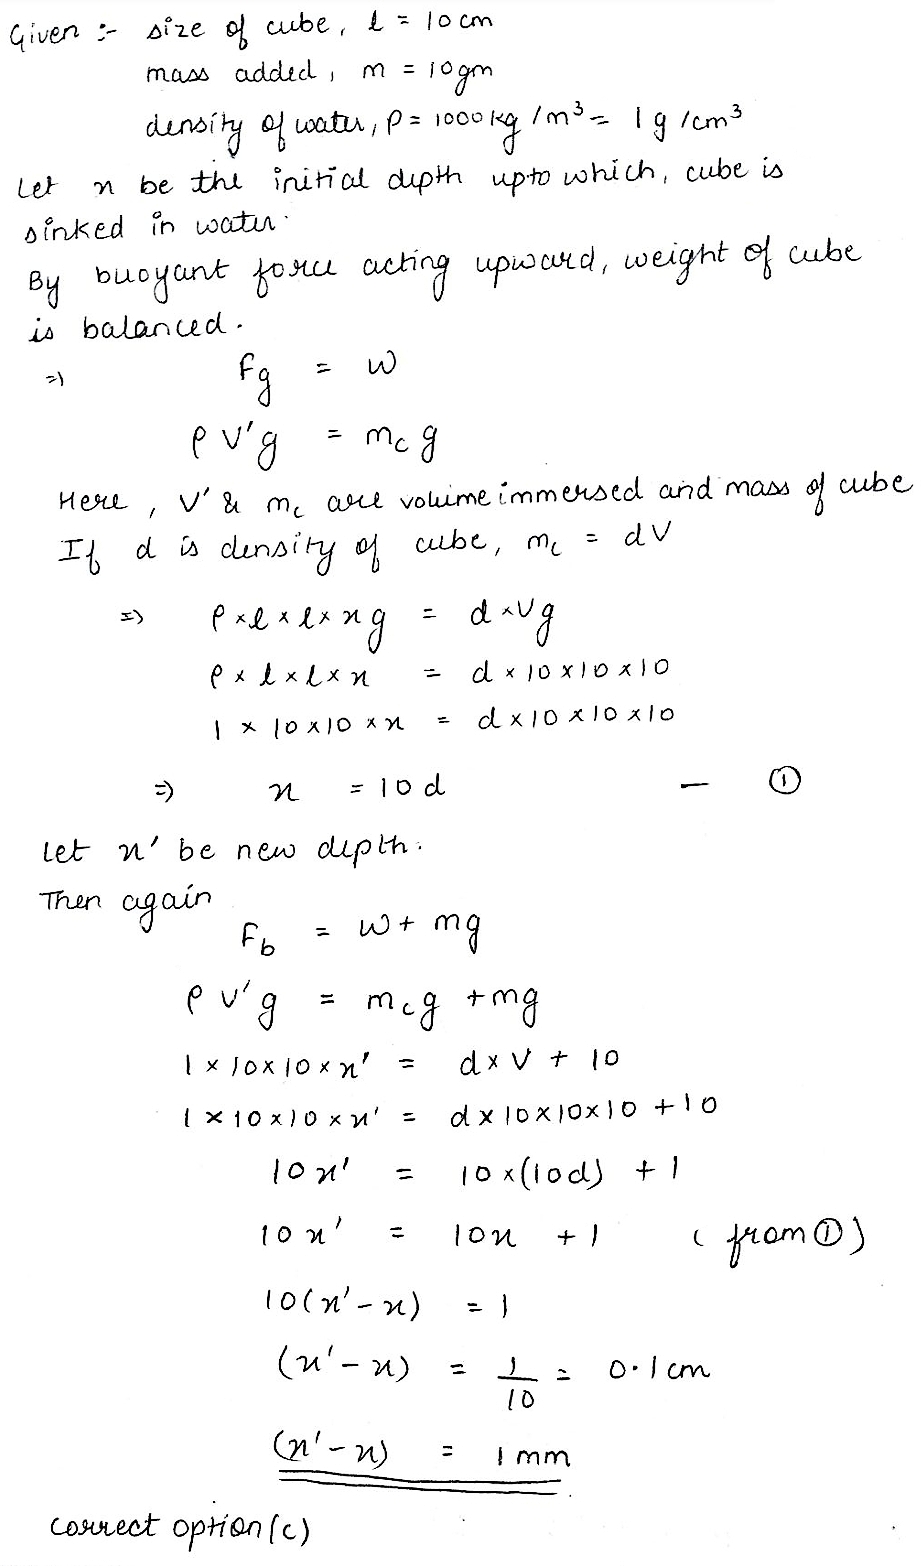 Given :- size of cube, l = 10 cm
mass added, m = 10gm
density of water, ρ = 1000 kg/m³ = 1 g/cm³
Let x be the initial depth upto which, cube is
sinked in water.
By buoyant force acting upward, weight of cube
is balanced.
⇒ Fg = W
ρ V'g = mc g
Here, V' & mc are volume immersed and mass of cube
If d is density of cube, mc = dV
⇒ ρ×l×l×xg = d×Vg
ρ×l×l×x = d×10×10×10
1×10×10×x = d×10×10×10
⇒ x = 10d — ①
Let x' be new depth.
Then again
Fb = W + mg
ρ V'g = mc g + mg
1×10×10×x' = d×V + 10
1×10×10×x' = d×10×10×10 + 10
10x' = 10×(10d) + 1
10x' = 10x + 1 (from ①)
10(x'-x) = 1
(x'-x) = 1/10 = 0.1 cm
(x'-x) = 1 mm
correct option (c)